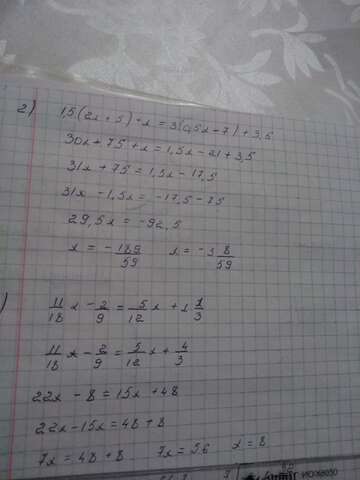 2) 15(2x + 5) + x = 3(0,5x - 7) + 3,5
30x + 75 + x = 1,5x - 21 + 3,5
31x + 75 = 1,5x - 17,5
31x - 1,5x = -17,5 - 75
29,5x = -92,5
x = - 189/59 x = -3 8/59
)
11/18 x - 2/9 = 5/12 x + 1 1/3
11/18 x - 2/9 = 5/12 x + 4/3
22x - 8 = 15x + 48
22x - 15x = 48 + 8
7x = 48 + 8 7x = 56 x = 8